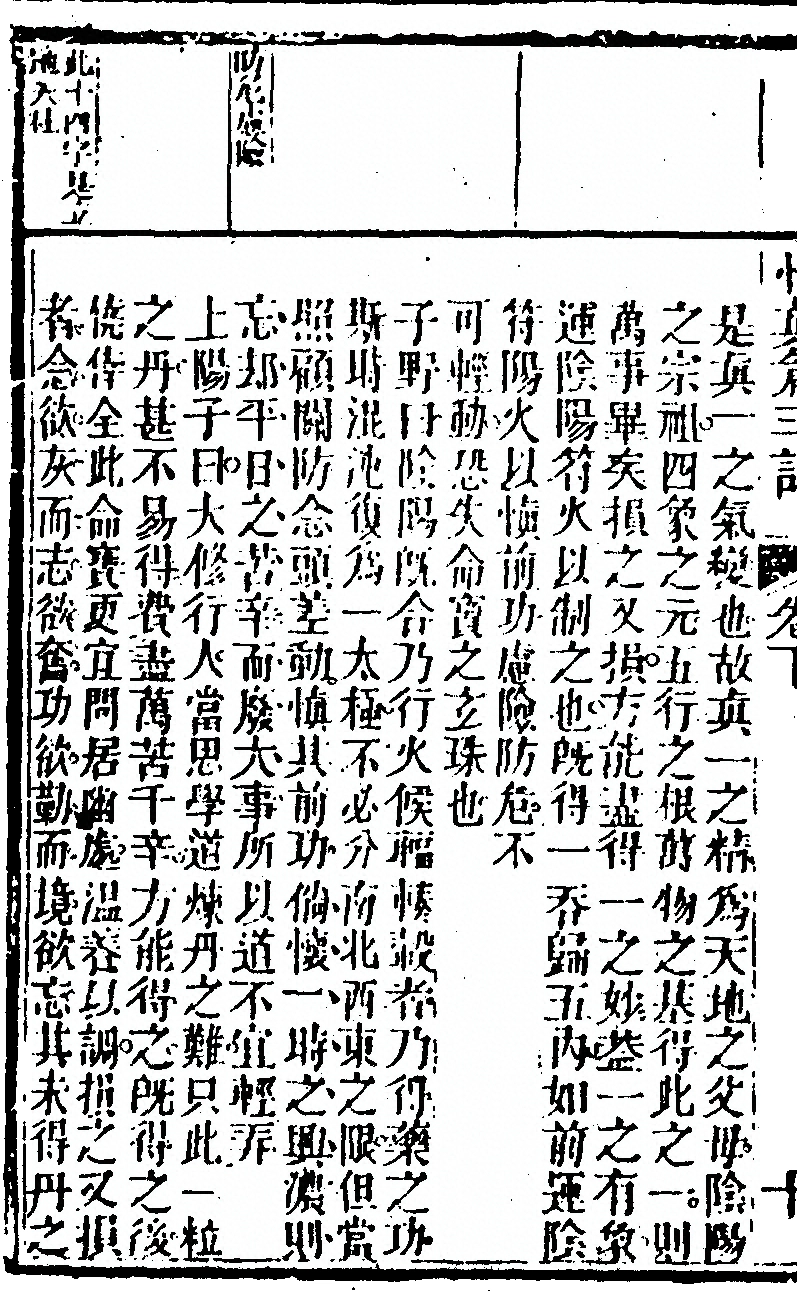 悟真篇三註 卷下 十
是真一之氣變也故真一之精爲天地之父母陰陽
之宗祖四象之元五行之根萬物之基得此之一則
萬事畢矣損之又損方能盡得一之妙葢一之有象
運陰陽符火以制之也旣得一吞歸五內如前運陰
符陽火以慎前功慮險防危不
可輕動恐失命寶之玄珠也
子野曰陰陽旣合乃行火候輻輳轂者乃得藥之功
斯時混沌復爲一太極不必分南北西東之限但當
照顧關防念頭差動慎其前功倘懷一時之興濃則
忘却平日之苦辛而廢大事所以道不宜輕弄
上陽子曰大修行人當思學道煉丹之難只此一粒
之丹甚不易得費盡萬苦千辛方能得之旣得之後
僥倖全此命寶更宜問居幽處溫養以調損之又損
者念欲灰而志欲奮功欲勤而境欲忘其未得丹之
防危慮險
此十四字是